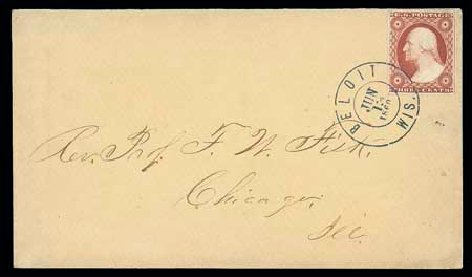 U.S. POSTAGE
THREE CENTS
BELOIT WIS.
JUN
13
1860
Rev. Prof. F. W. Fisk.
Chicago.
Ill.